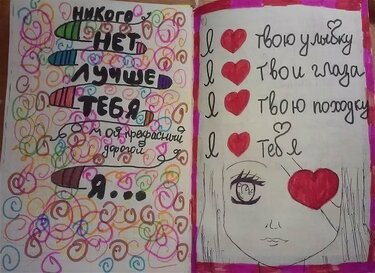 никого
НЕТ
ЛУЧШЕ
ТЕБЯ
мой прекрасный
дорогой
Я...
Я ❤ твою улыбку
Я ❤ твои глаза
Я ❤ твою походку
Я ❤ тебя